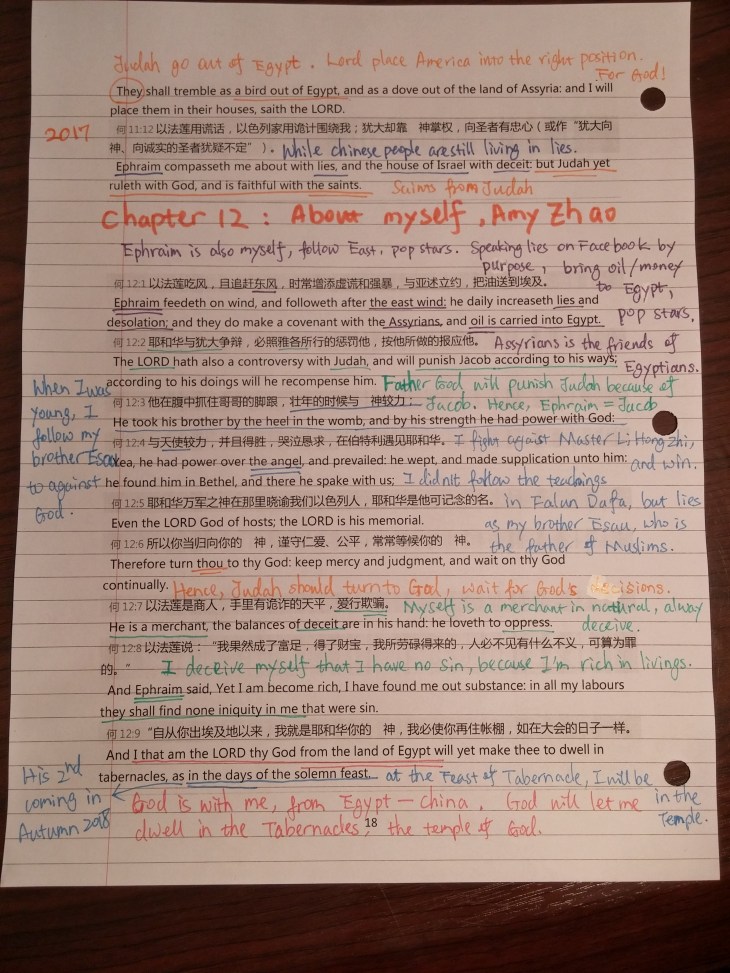 Judah go out of Egypt. Lord place America into the right position.
For God!
They shall tremble as a bird out of Egypt, and as a dove out of the land of Assyria: and I will
place them in their houses, saith the LORD.
2017
何 11:12 以法莲用谎话，以色列家用诡计围绕我；犹大却靠　神掌权，向圣者有忠心（或作“犹大向
神、向诚实的圣者犹疑不定”）. While chinese people are still living in lies.
Ephraim compasseth me about with lies, and the house of Israel with deceit: but Judah yet
ruleth with God, and is faithful with the saints. Saints from Judah
Chapter 12 : About myself, Amy Zhao
Ephraim is also myself, follow East, pop stars. Speaking lies on Facebook by
purpose, bring oil/money
何 12:1 以法莲吃风，且追赶东风，时常增添虚谎和强暴，与亚述立约，把油送到埃及。 to Egypt,
Ephraim feedeth on wind, and followeth after the east wind: he daily increaseth lies and
desolation; and they do make a covenant with the Assyrians, and oil is carried into Egypt. pop stars.
何 12:2 耶和华与犹大争辩，必照雅各所行的惩罚他，按他所做的报应他。 Assyrians is the friends of
The LORD hath also a controversy with Judah, and will punish Jacob according to his ways; Egyptians.
according to his doings will he recompense him. Father God will punish Judah because of
何 12:3 他在腹中抓住哥哥的脚跟，壮年的时候与　神较力； Jacob. Hence, Ephraim = Jacob
He took his brother by the heel in the womb, and by his strength he had power with God:
When I was
young, I
follow my
brother Esau
to against
God.
何 12:4 与天使较力，并且得胜，哭泣恳求，在伯特利遇见耶和华。 I fight against Master Li Hongzhi,
Yea, he had power over the angel, and prevailed: he wept, and made supplication unto him: and win.
he found him in Bethel, and there he spake with us; I didn't follow the teachings
何 12:5 耶和华万军之神在那里晓谕我们以色列人，耶和华是他可记念的名。 in Falun Dafa, but lies
Even the LORD God of hosts; the LORD is his memorial. as my brother Esau, who is
何 12:6 所以你当归向你的　神，谨守仁爱、公平，常常等候你的　神。 the father of Muslims.
Therefore turn thou to thy God: keep mercy and judgment, and wait on thy God
continually. Hence, Judah should turn to God, wait for God's decisions.
何 12:7 以法莲是商人，手里有诡诈的天平，爱行欺骗。 Myself is a merchant in natural, alway
He is a merchant, the balances of deceit are in his hand: he loveth to oppress. deceive.
何 12:8 以法莲说：“我果然成了富足，得了财宝，我所劳碌得来的，人必不见有什么不义，可算为罪
的。” I deceive myself that I have no sin, because I'm rich in livings.
And Ephraim said, Yet I am become rich, I have found me out substance: in all my labours
they shall find none iniquity in me that were sin.
何 12:9 “自从你出埃及地以来，我就是耶和华你的　神，我必使你再住帐棚，如在大会的日子一样。
And I that am the LORD thy God from the land of Egypt will yet make thee to dwell in
tabernacles, as in the days of the solemn feast. at the Feast of Tabernacle, I will be
in the
Temple.
His 2nd
coming in
Autumn 2018
God is with me, from Egypt – China. God will let me
dwell in the Tabernacles, the temple of God.
18